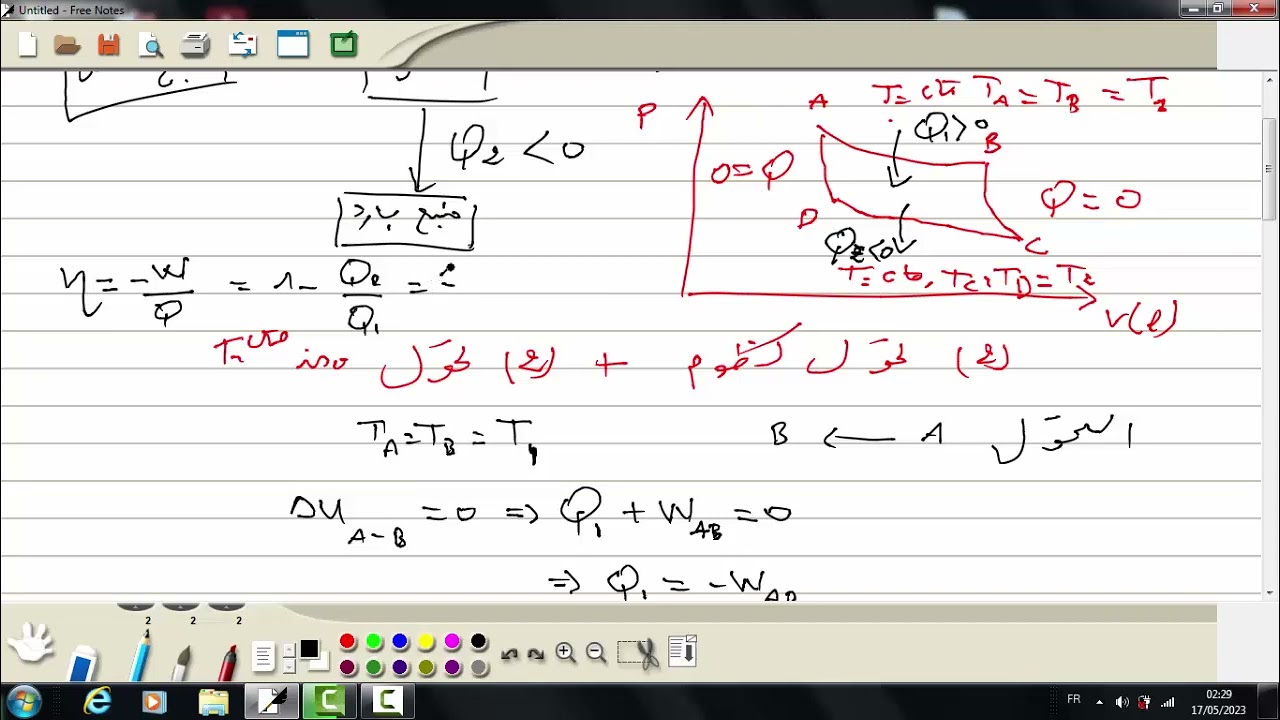 Untitled - Free Notes
Q2 < 0
منبع بارد
η = -W/Q = 1 - Q2/Q1 = ?
P
A
T = cte TA = TB = T1
Q1 > 0
B
0 = Q
Q = 0
D
Q2 < 0
C
T = cte, TC = TD = T2
V(l)
T = cte iso تحول (2) + تحول (2)
TA = TB = T1
التحول A ← B
ΔU A-B = 0 ⇒ Q1 + WAB = 0
⇒ Q1 = -WAB
2
2
2
FR
02:29
17/05/2023